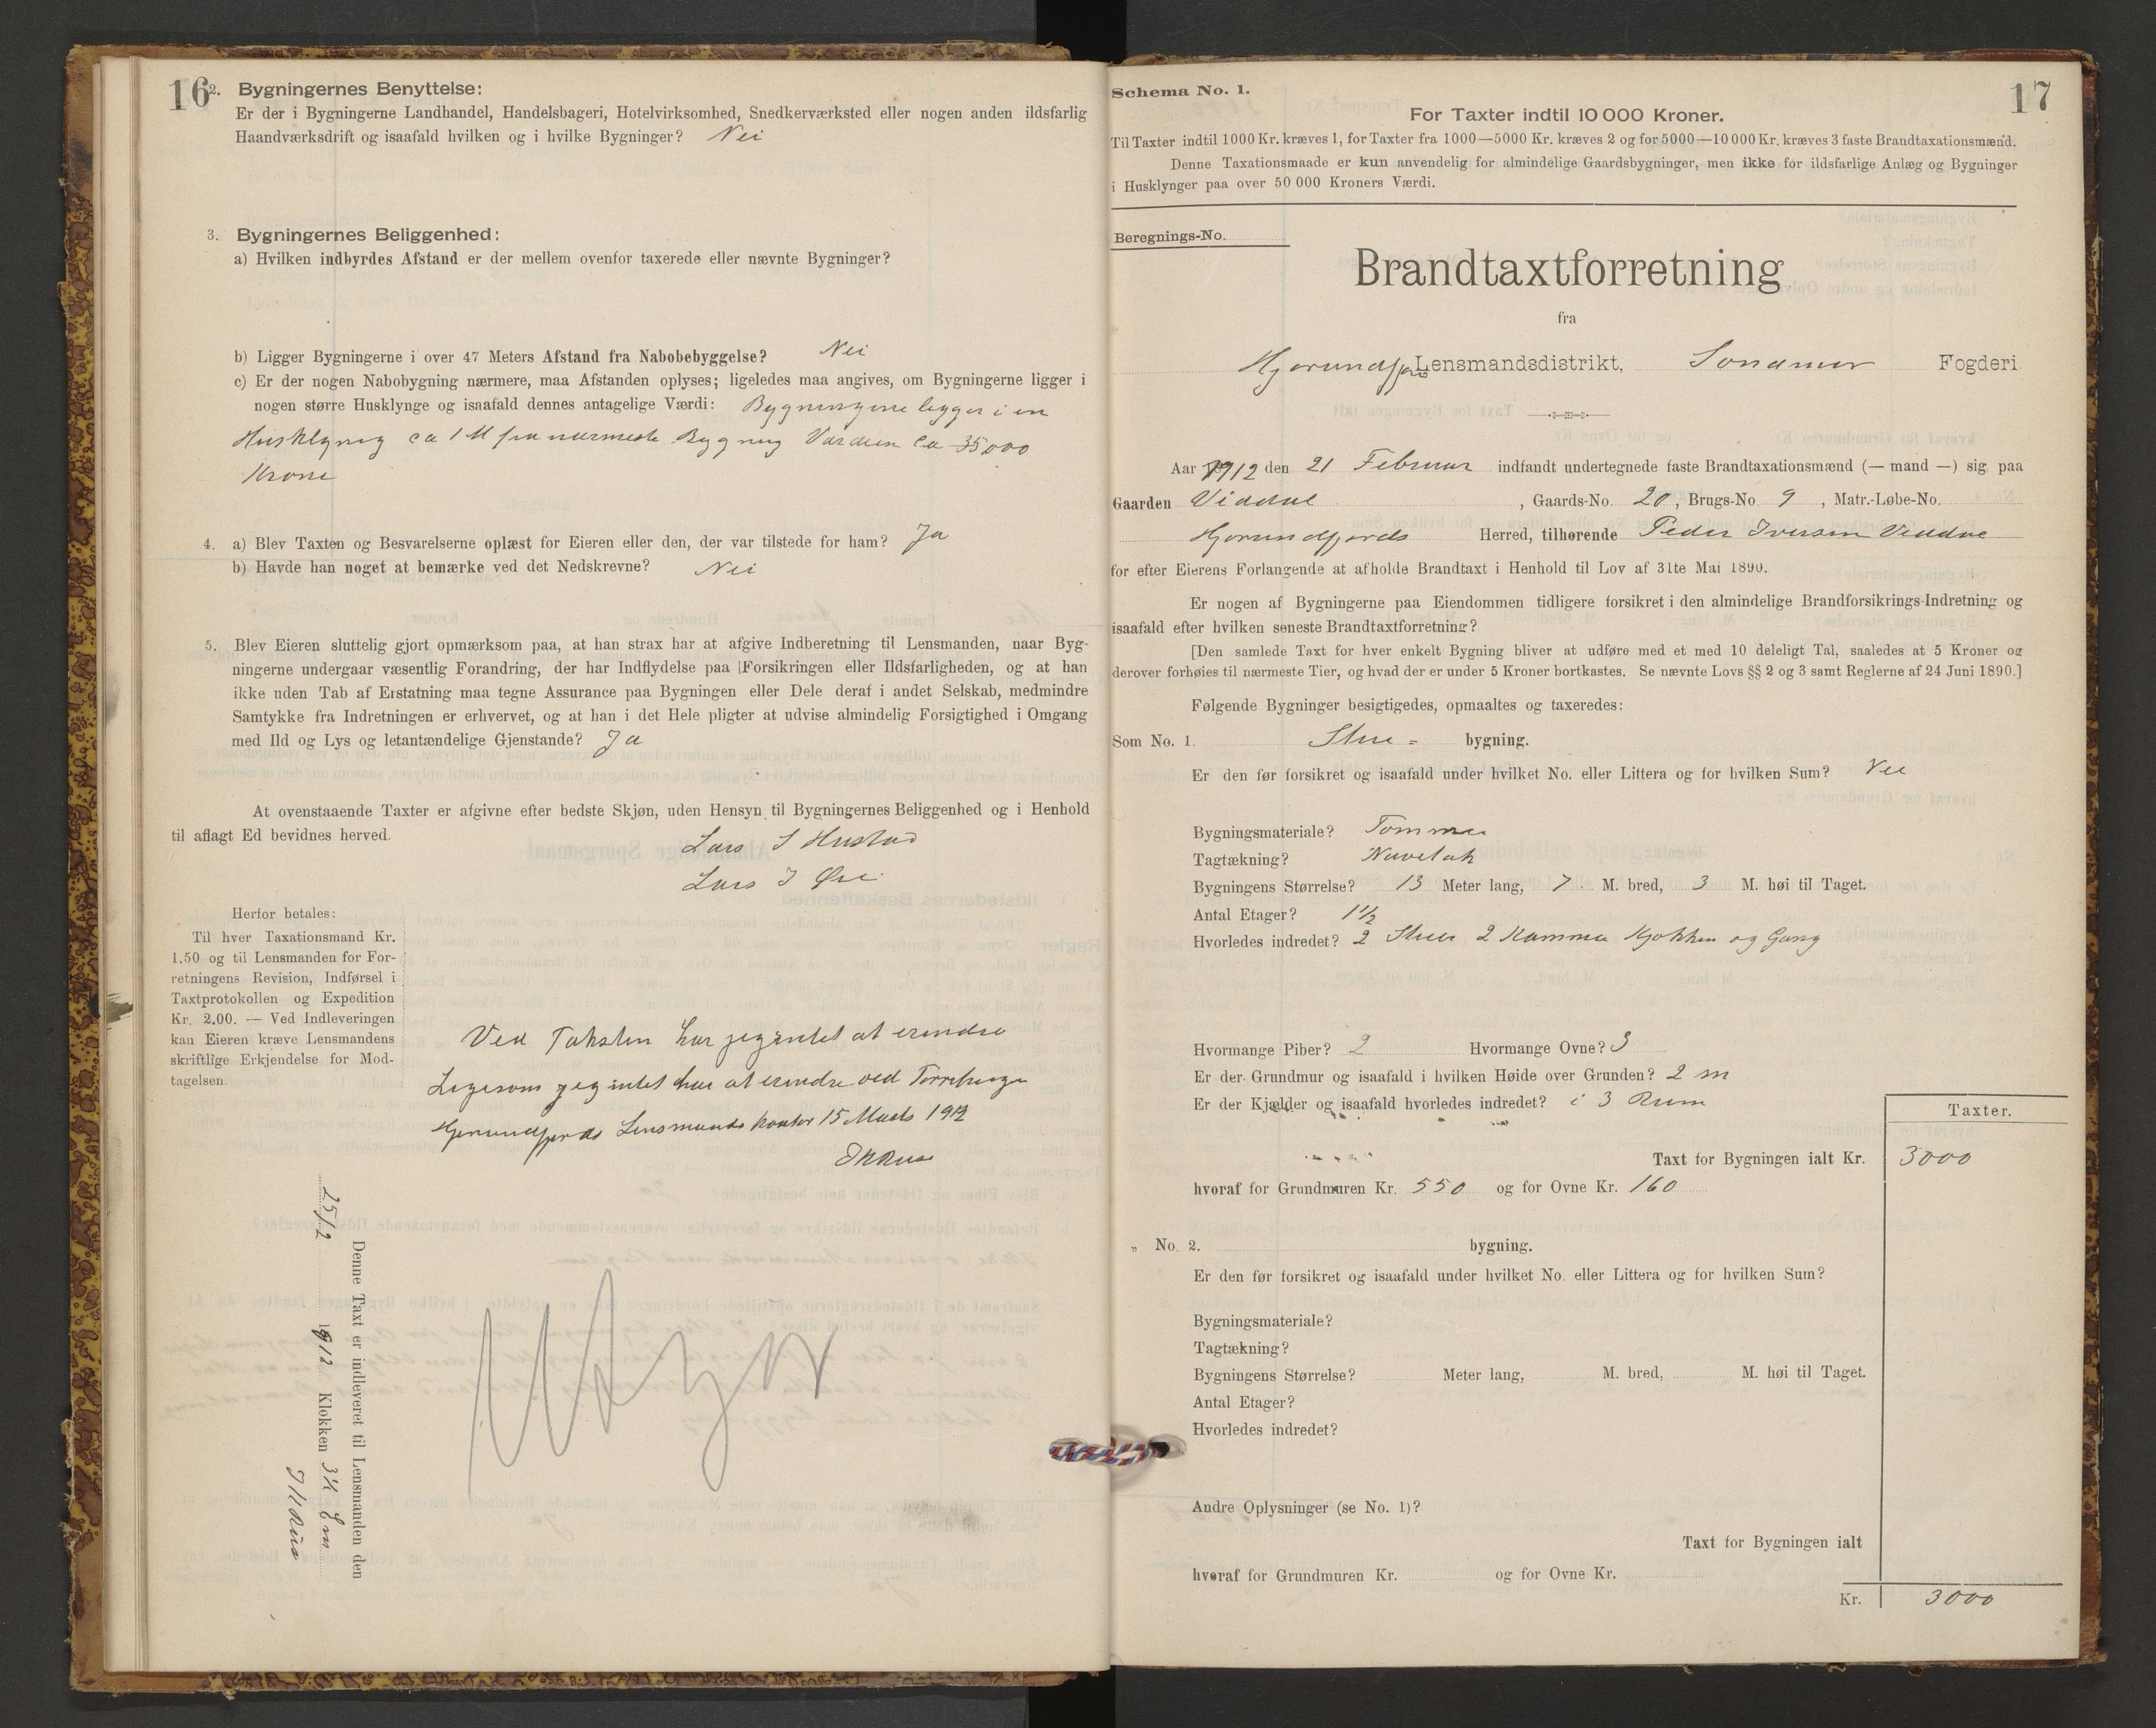 16
2. Bygningernes Benyttelse:
Er der i Bygningerne Landhandel, Handelsbageri, Hotelvirksomhed, Snedkerværksted eller nogen anden ildsfarlig
Haandværksdrift og isaafald hvilken og i hvilke Bygninger? Nei
3. Bygningernes Beliggenhed:
a) Hvilken indbyrdes Afstand er der mellem ovenfor taxerede eller nævnte Bygninger?
b) Ligger Bygningerne i over 47 Meters Afstand fra Nabobebyggelse? Nei
c) Er der nogen Nabobygning nærmere, maa Afstanden oplyses; ligeledes maa angives, om Bygningerne ligger i
nogen større Husklynge og isaafald dennes antagelige Værdi: Bygningerne ligger i en
Husklynge ca 1 M fra nærmeste Bygning Værdien ca 35,000
Krone
4. a) Blev Taxten og Besvarelserne oplæst for Eieren eller den, der var tilstede for ham? Ja
b) Havde han noget at bemærke ved det Nedskrevne? Nei
5. Blev Eieren sluttelig gjort opmærksom paa, at han strax har at afgive Indberetning til Lensmanden, naar Byg-
ningerne undergaar væsentlig Forandring, der har Indflydelse paa Forsikringen eller Ildsfarligheden, og at han
ikke uden Tab af Erstatning maa tegne Assurance paa Bygningen eller Dele deraf i andet Selskab, medmindre
Samtykke fra Indretningen er erhvervet, og at han i det Hele pligter at udvise almindelig Forsigtighed i Omgang
med Ild og Lys og letantændelige Gjenstande? Ja
At ovenstaaende Taxter er afgivne efter bedste Skjøn, uden Hensyn til Bygningernes Beliggenhed og i Henhold
til aflagt Ed bevidnes herved.
Lars J Hustad
Lars J Øie
Herfor betales:
Til hver Taxationsmand Kr.
1.50 og til Lensmanden for For-
retningens Revision, Indførsel i
Taxtprotokollen og Expedition
Kr. 2.00. — Ved Indleveringen
kan Eieren kræve Lensmandens
skriftlige Erkjendelse for Mod-
tagelsen.
Ved Taksten har jeg intet at erindre
Ligesom jeg intet har at erindre ved
Hjørundfjords Lensmands kontor 15 Marts 1912
Denne Taxt er indleveret til Lensmanden den
25/2 1912 Klokken 3 Em
17
Schema No. 1.
For Taxter indtil 10 000 Kroner.
Til Taxter indtil 1000 Kr. kræves 1, for Taxter fra 1000—5000 Kr. kræves 2 og for 5000—10000 Kr. kræves 3 faste Brandtaxationsmænd.
Denne Taxationsmaade er kun anvendelig for almindelige Gaardsbygninger, men ikke for ildsfarlige Anlæg og Bygninger
i Husklynger paa over 50 000 Kroners Værdi.
Beregnings-No.
Brandtaxtforretning
fra
Hjørundfjord Lensmandsdistrikt, Søndmør Fogderi
Aar 1912 den 21 Februar indfandt undertegnede faste Brandtaxationsmænd (— mand —) sig paa
Gaarden Viddal, Gaards-No. 20, Brugs-No. 9, Matr.-Løbe-No.
Hjørundfjords Herred, tilhørende Peder Iversen Viddal
for efter Eierens Forlangende at afholde Brandtaxt i Henhold til Lov af 31te Mai 1890.
Er nogen af Bygningerne paa Eiendommen tidligere forsikret i den almindelige Brandforsikrings-Indretning og
isaafald efter hvilken seneste Brandtaxtforretning?
[Den samlede Taxt for hver enkelt Bygning bliver at udføre med et med 10 deleligt Tal, saaledes at 5 Kroner og
derover forhøies til nærmeste Tier, og hvad der er under 5 Kroner bortkastes. Se nævnte Lovs §§ 2 og 3 samt Reglerne af 24 Juni 1890.]
Følgende Bygninger besigtigedes, opmaaltes og taxeredes:
Som No. 1. Stue- bygning.
Er den før forsikret og isaafald under hvilket No. eller Littera og for hvilken Sum? Nei
Bygningsmateriale? Tømmer
Tagtækning? Navetak
Bygningens Størrelse? 13 Meter lang, 7 M. bred, 3 M. høi til Taget.
Antal Etager? 1½
Hvorledes indredet? 2 Stuer 2 Kammer Kjøkken og Gang
Hvormange Piber? 2 Hvormange Ovne? 3
Er der Grundmur og isaafald i hvilken Høide over Grunden? 2 m
Er der Kjælder og isaafald hvorledes indredet? i 3 Rum
Taxter.
Taxt for Bygningen ialt Kr. 3000
hvoraf for Grundmuren Kr. 550 og for Ovne Kr. 160
„ No. 2. bygning.
Er den før forsikret og isaafald under hvilket No. eller Littera og for hvilken Sum?
Bygningsmateriale?
Tagtækning?
Bygningens Størrelse? Meter lang, M. bred, M. høi til Taget.
Antal Etager?
Hvorledes indredet?
Andre Oplysninger (se No. 1)?
Taxt for Bygningen ialt
hvoraf for Grundmuren Kr. og for Ovne Kr.
Kr. 3000